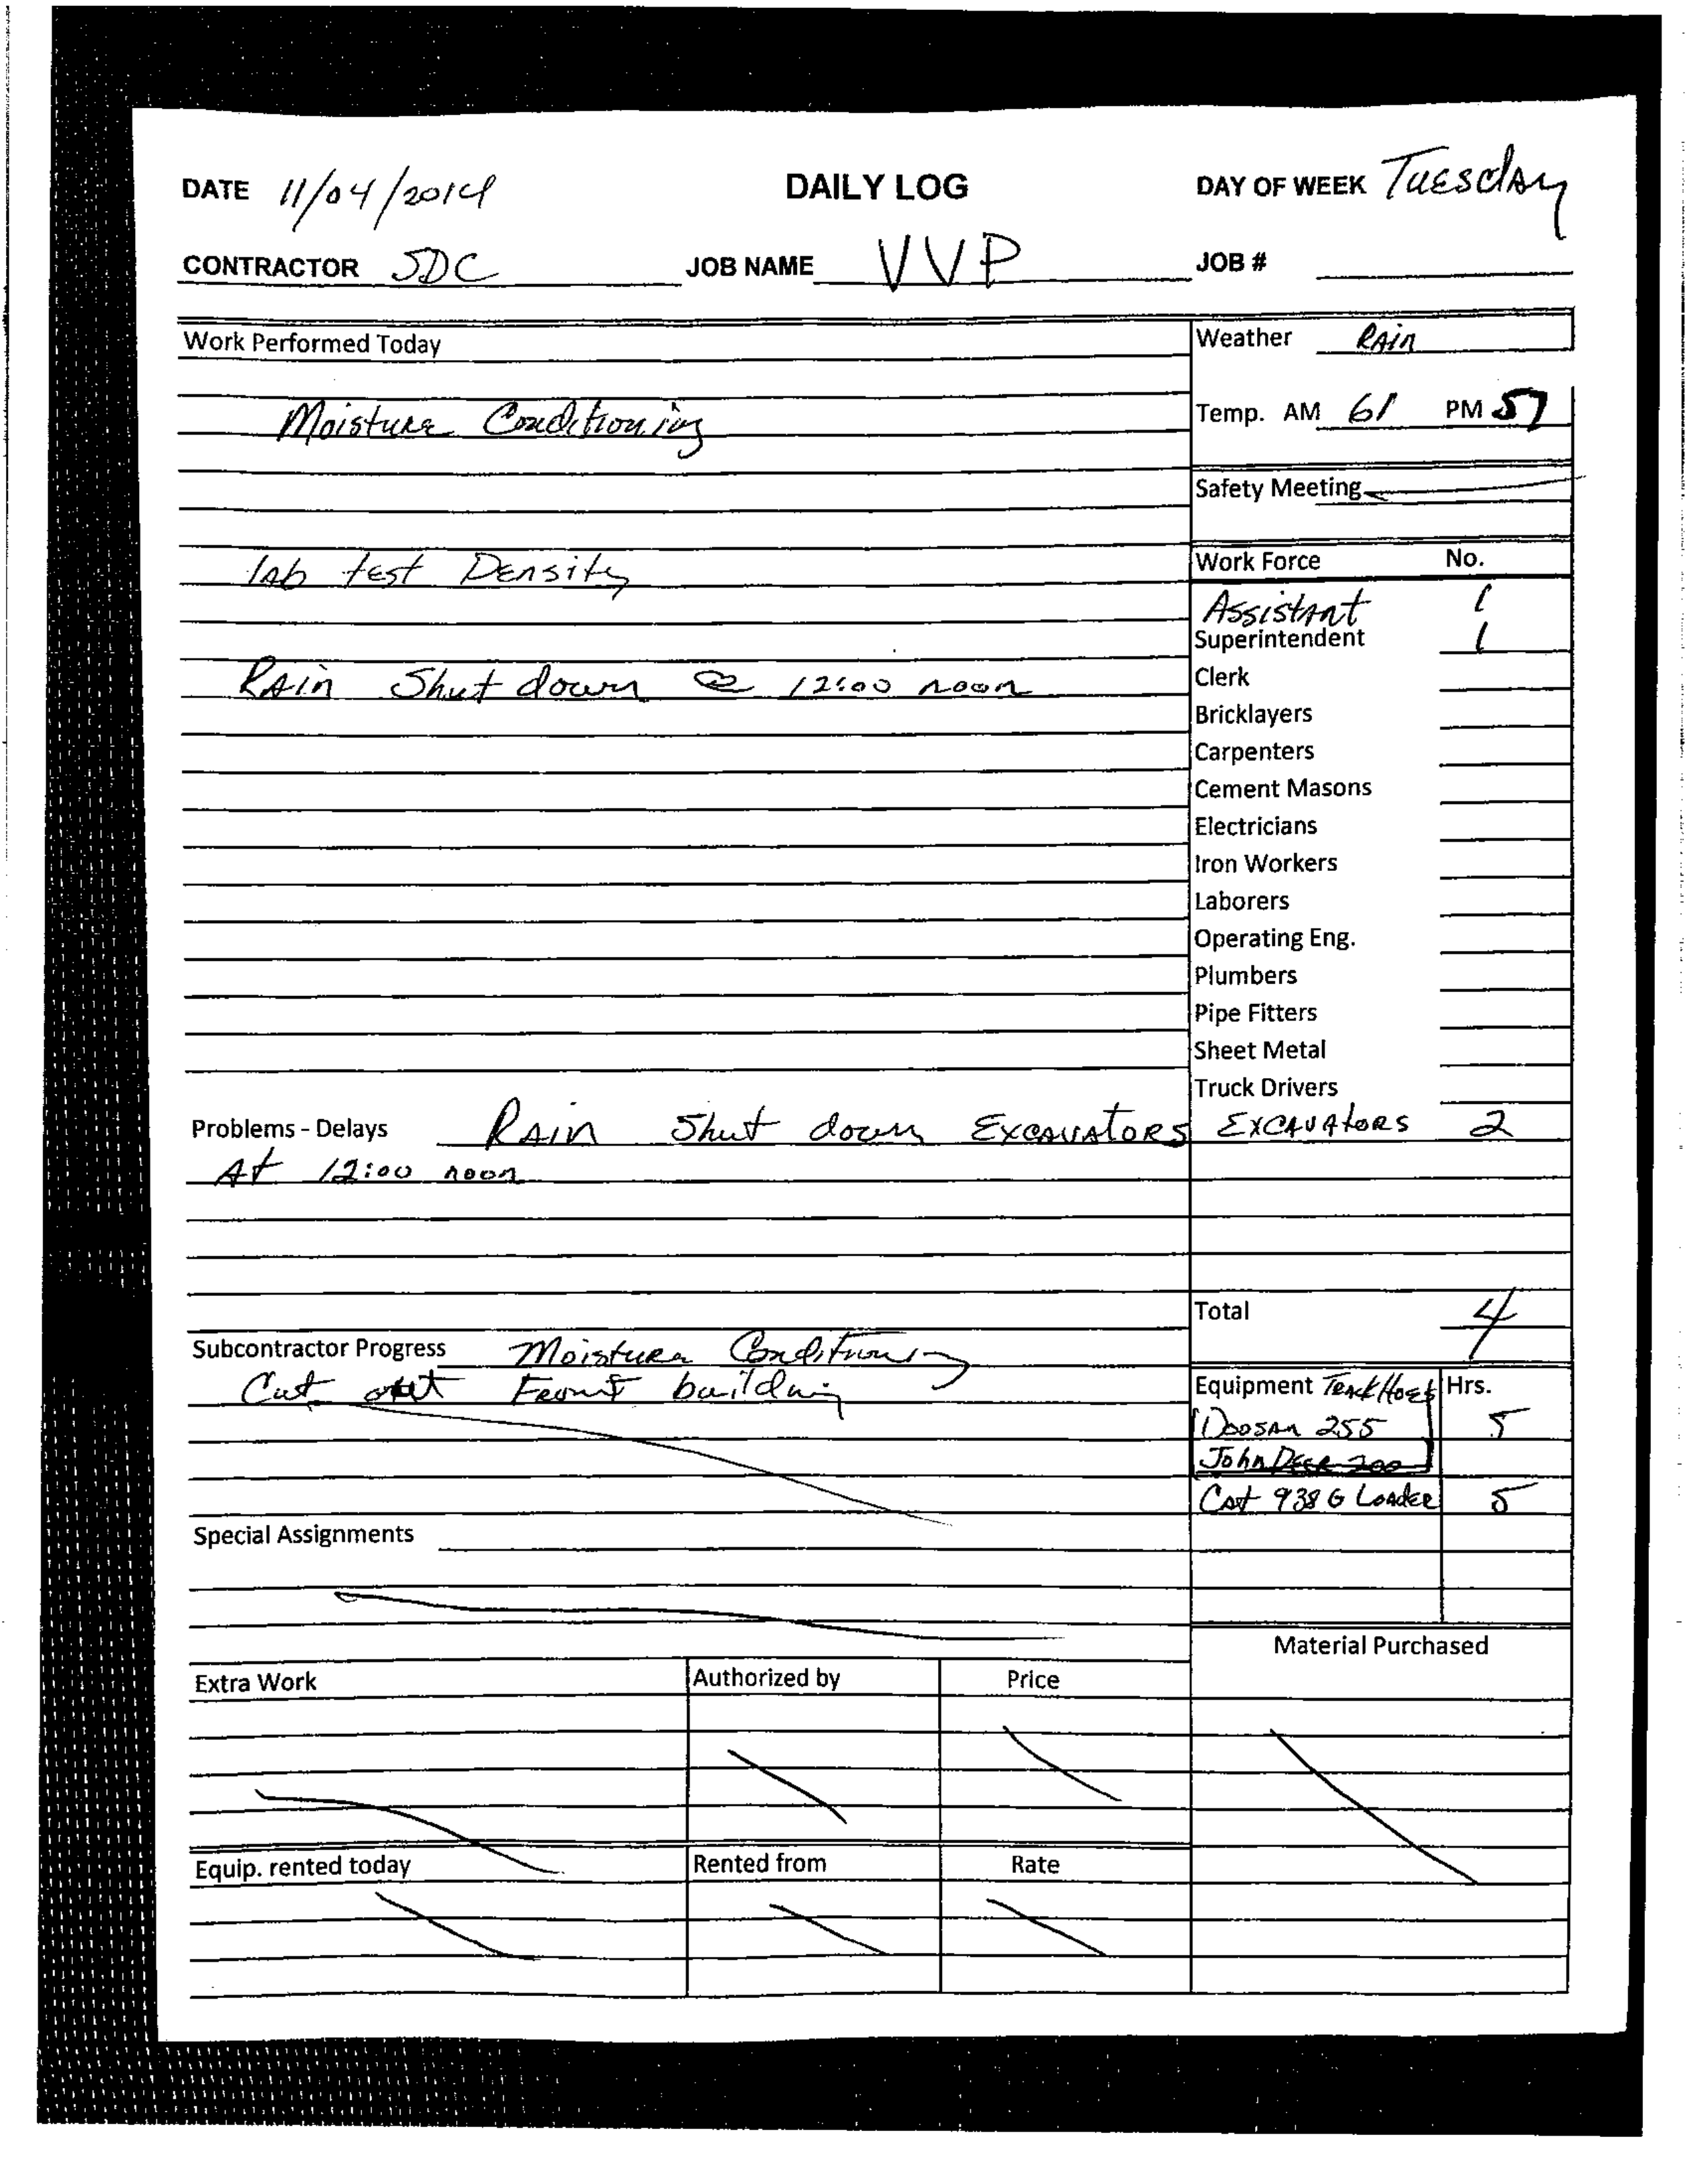 DATE 11/04/2014 DAILY LOG DAY OF WEEK Tuesday
CONTRACTOR SDC JOB NAME VVP JOB #
Work Performed Today
Moisture Conditioning
lab test Density
Rain Shut down @ 12:00 noon
Weather Rain
Temp. AM 61 PM 57
Safety Meeting
Work Force No.
Assistant 1
Superintendent 1
Clerk
Bricklayers
Carpenters
Cement Masons
Electricians
Iron Workers
Laborers
Operating Eng.
Plumbers
Pipe Fitters
Sheet Metal
Truck Drivers
Excavators 2
Total 4
Problems - Delays Rain Shut down Excavators
At 12:00 noon
Subcontractor Progress Moisture Conditioning
Cut out Front building
Equipment Track Hoes Hrs.
Doosan 255 5
John Deer 200
Cat 938 G Loader 5
Special Assignments
Material Purchased
Extra Work Authorized by Price
Equip. rented today Rented from Rate